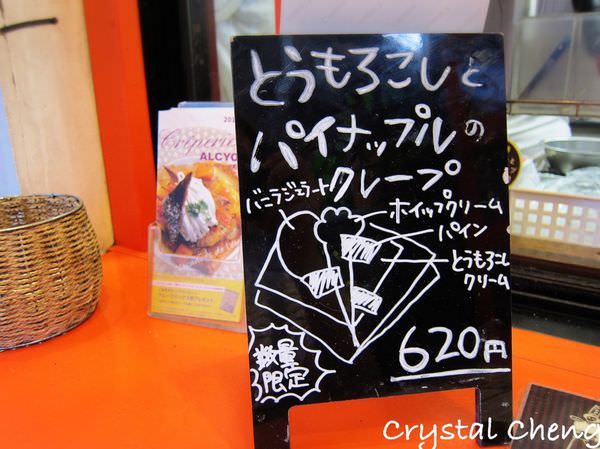 とうもろこしと
パイナップルの
クレープ
バニラジェラート
ホイップクリーム
パイン
とうもろこし
クリーム
数量
限定
620円
Crêperie
ALCYO
Crystal Cheng